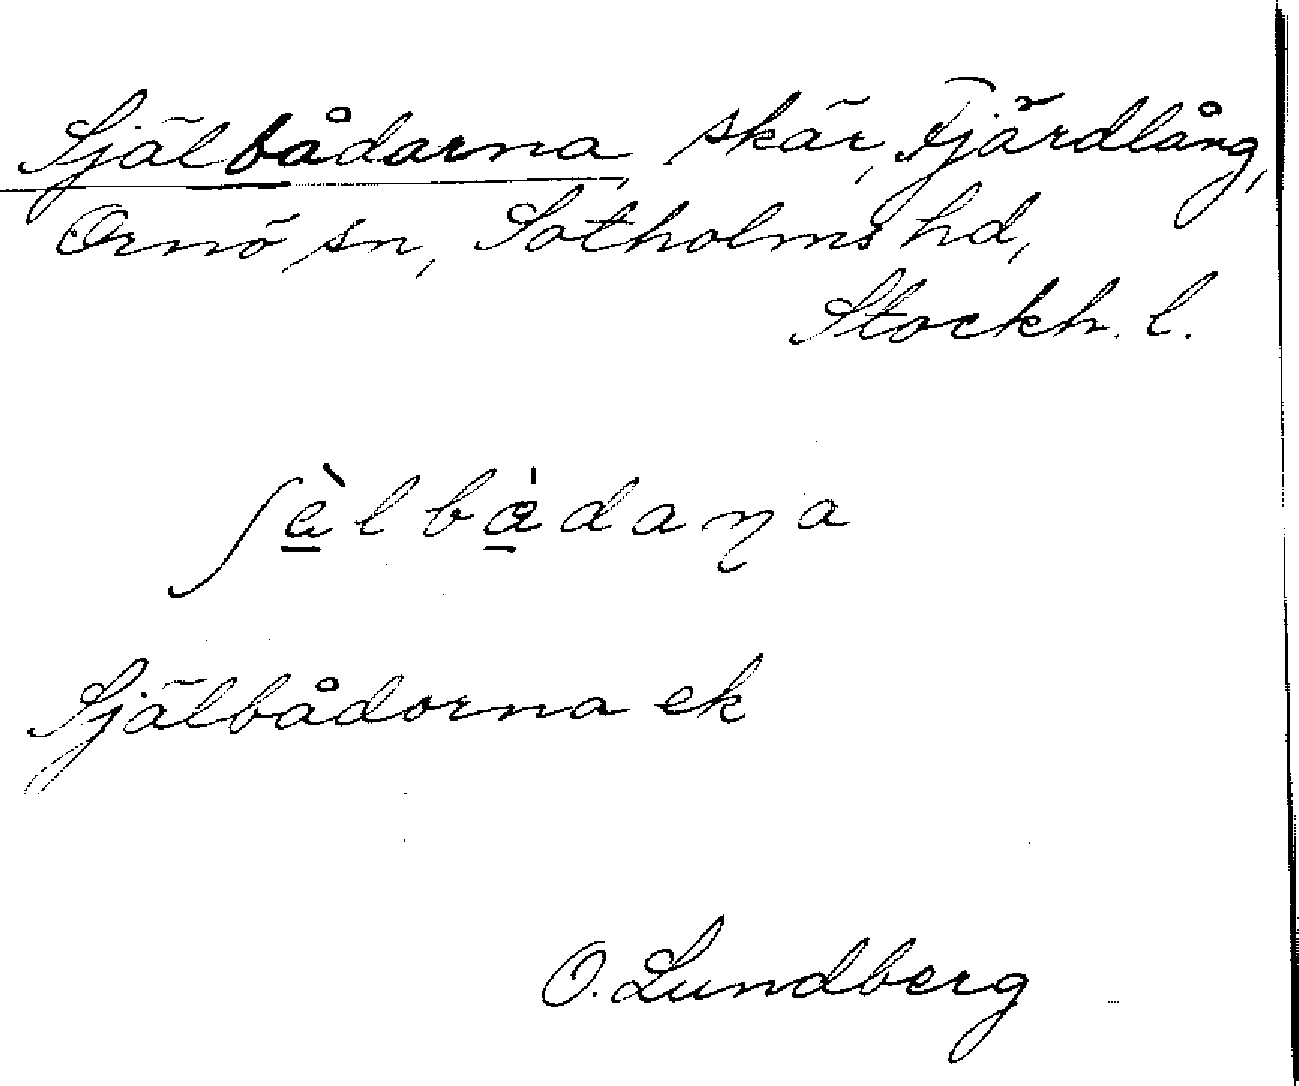 Själbådarna, skär, Fjärdlång,
Ornö sn, Sotholms hd,
Stockh. l.
ʃæ̀lbå̀daɳa
Själbådorna ek
O. Lundberg